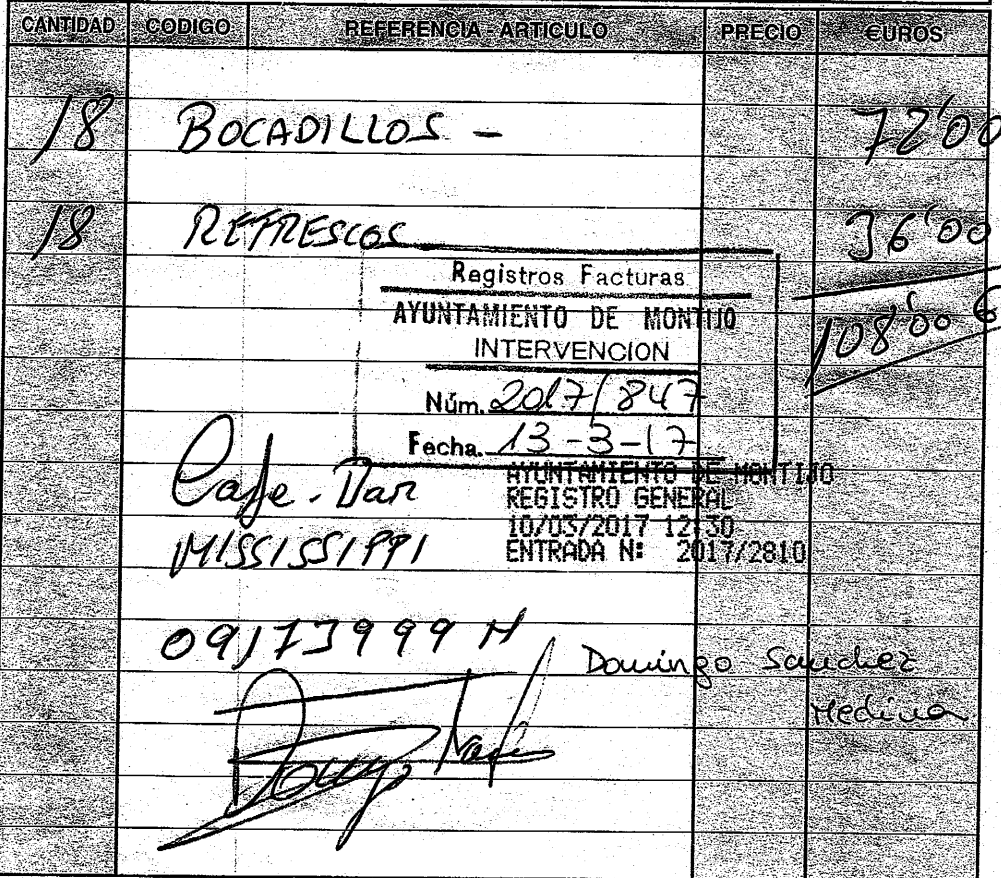 CANTIDAD CODIGO REFERENCIA - ARTICULO PRECIO €UROS
18 BOCADILLOS - 72'00
18 REFRESCOS 36'00
108'00 €
Registros Facturas
AYUNTAMIENTO DE MONTIJO
INTERVENCION
Núm. 2017/847
Fecha. 13-3-17
Cafe-Bar
MISSISSIPPI
AYUNTAMIENTO DE MONTIJO
REGISTRO GENERAL
10/03/2017 12:30
ENTRADA N: 2017/2810
09173999 H
Domingo Sanchez
Medina